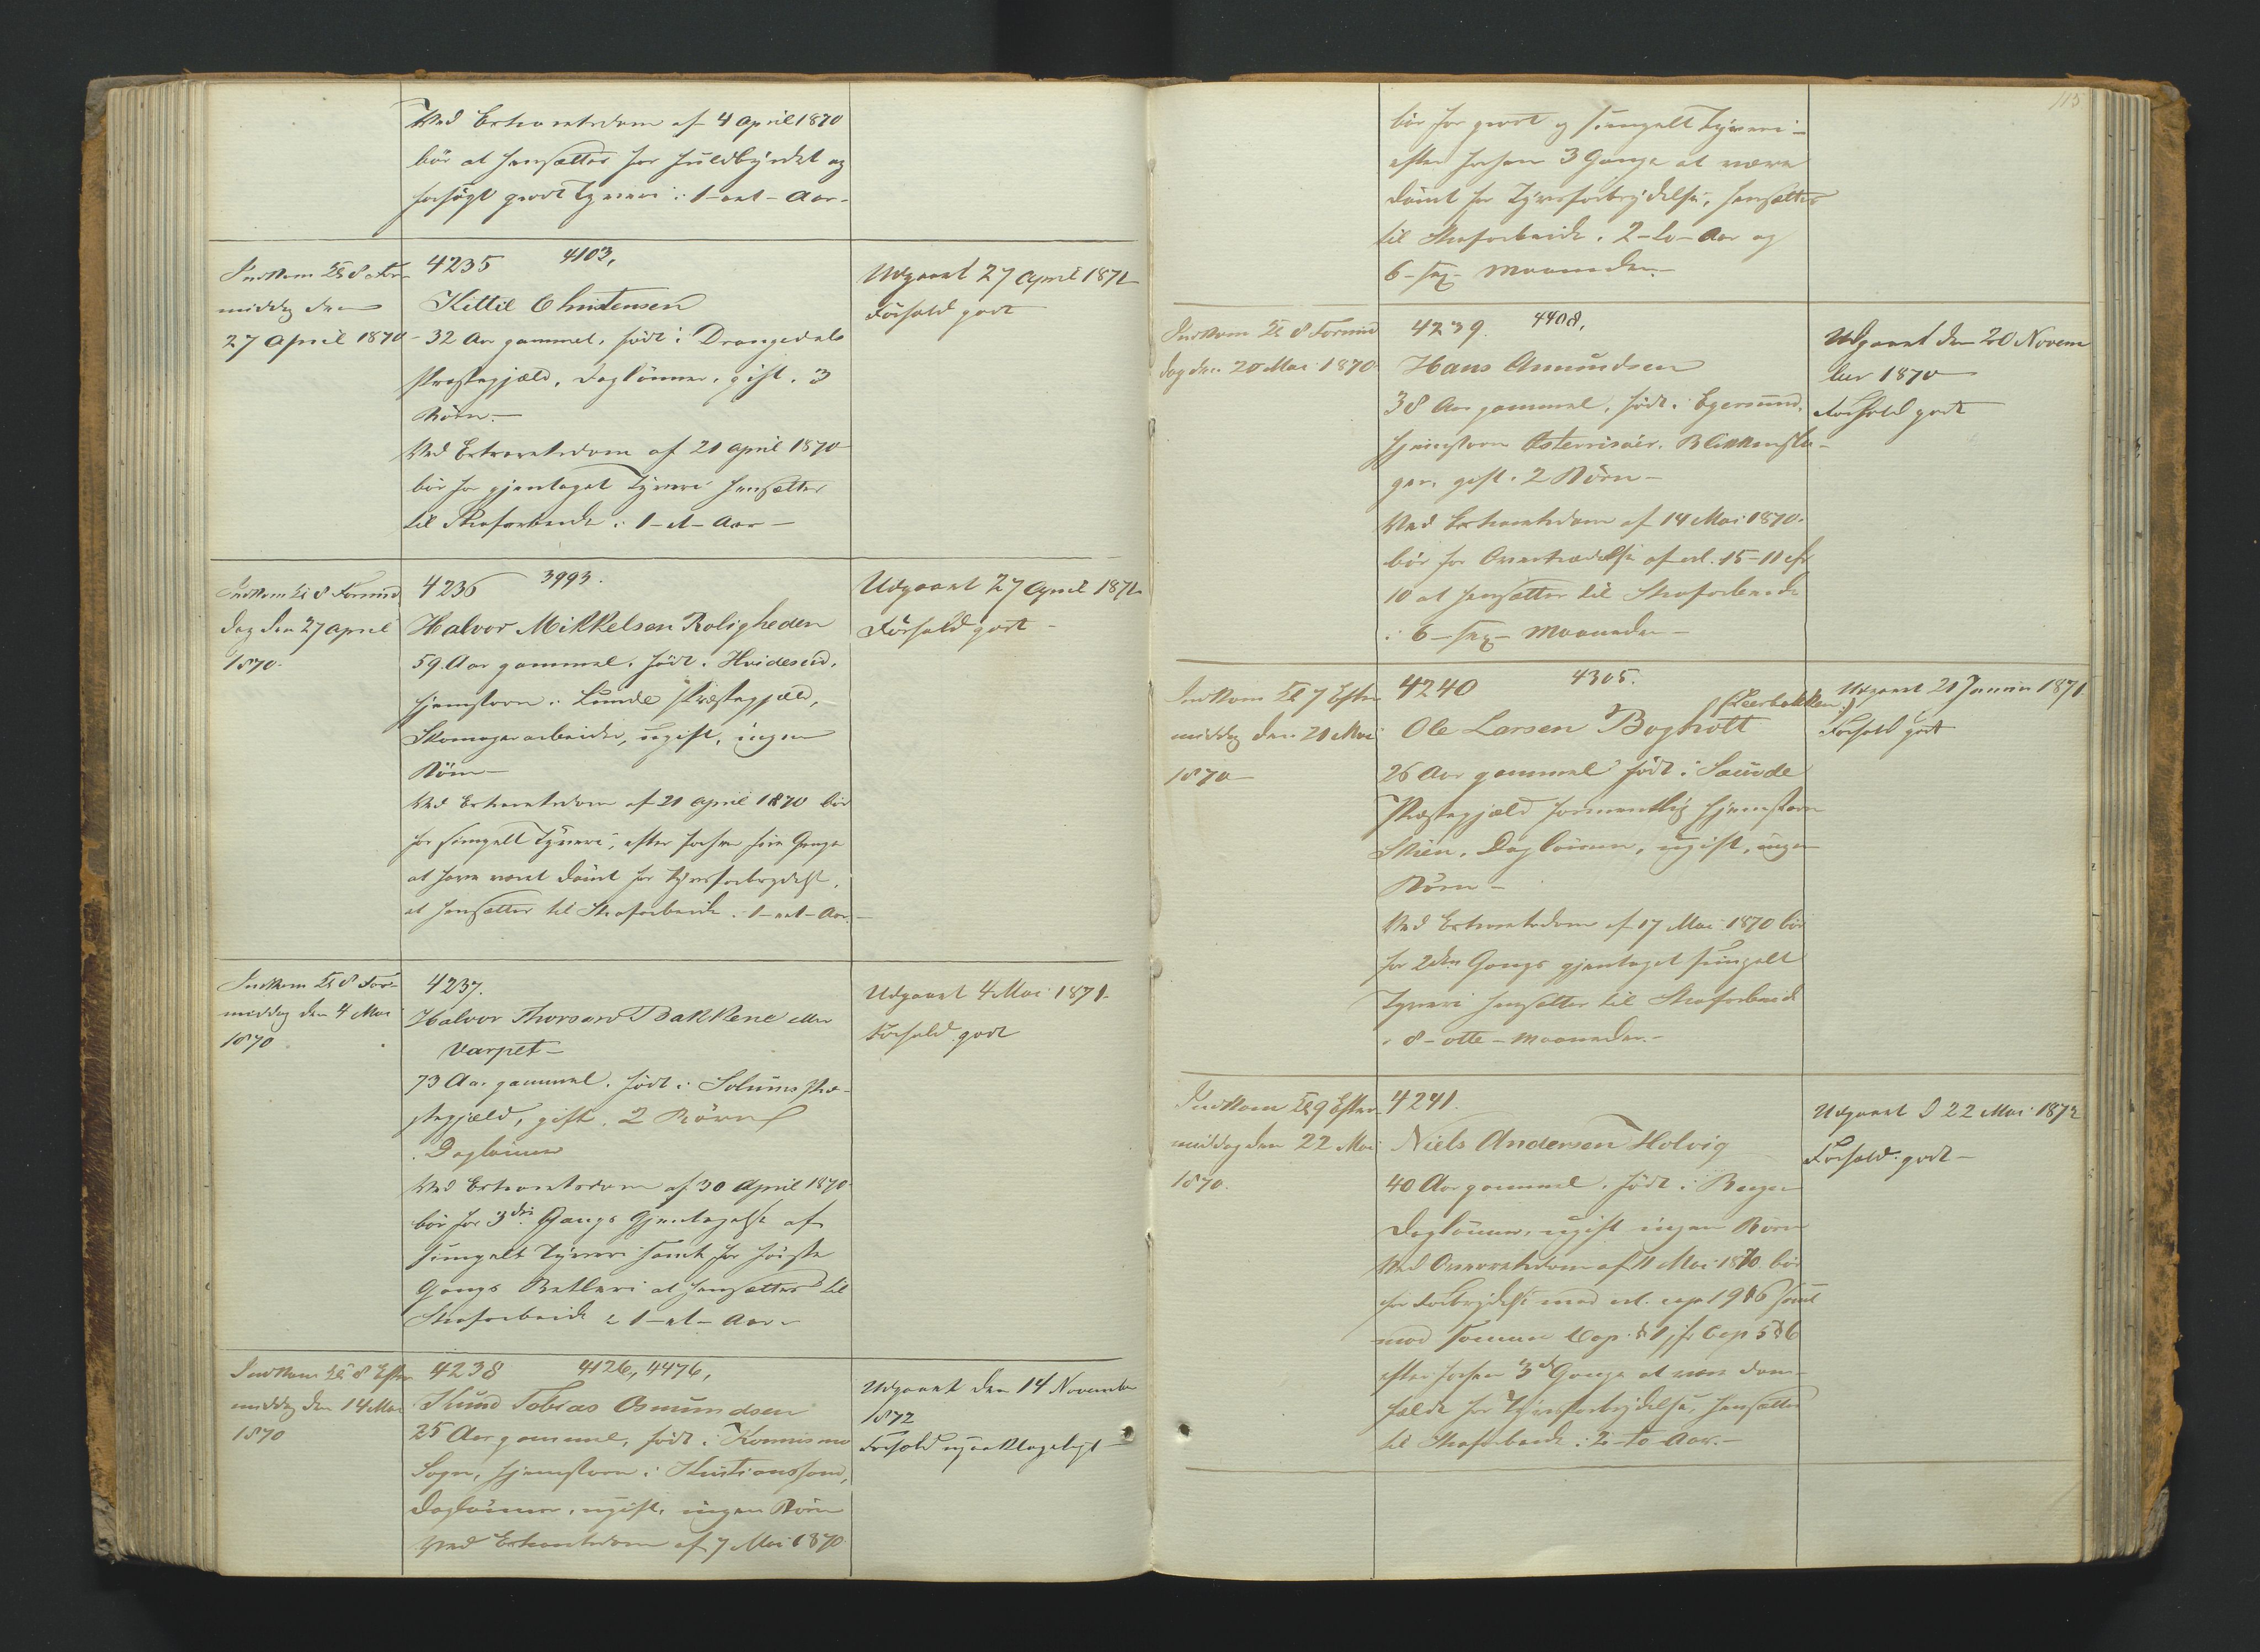 Ved Extraretsdom af 4 April 1870
bör at hensættes for fuldbyrdet og
forsögt grovt Tyveri i 1-eet-Aar-
Indkom Kl 8 For-
middag den
27 April 1870-
4235 4103,
Kittil Christensen
32 Aar gammel, född i Drangedals
Præstegjæld, Daglönner, gift, 3
Börn.-
Ved Extraretsdom af 21 April 1870
bör for gjentaget Tyveri hensættes
til Strafarbeide i 1-et-Aar-
Udgaaet 27 April 1871
Forhold godt
Indkom Kl 8 Formid
dag den 27 April
1870.
4236 3993.
Halvor Mikkelsen Roligheden
59 Aar gammel, född i Hvideseid,
hjemstavn i Lunde Præstegjæld,
Skomagerarbeider, ugift, ingen
Börn-
Ved Extraretsdom af 21 April 1870 bör
for simpelt Tyveri, efter forhen fire Gange
at have været dömt for Tyvsforbrydelse,
at hensættes til Strafarbeide i 1-eet-Aar.-
Udgaaet 27 April 1871
Forhold godt-
Indkom Kl 8 For-
middag den 4 Mai
1870
4237.
Halvor Thorsen Bakkene eller
Varpet-
73 Aar gammel, född i Solums Præ-
stegjæld, gift, 2 Börn
Daglönner
Ved Extraretsdom af 30 April 1870
bör for 3die Gangs Gjentagelse af
simpelt Tyveri samt for förste
Gangs Betleri at hensættes til
Strafarbeide i 1-et-Aar-
Udgaaet 4 Mai 1871.
Forhold godt
Indkom Kl 8 Efter
middag den 14 Mai
1870
4238 4126, 4476,
Knud Tobias Osmundsen
25 Aar gammel, född i
Sogn, hjemstavn i Kristianssand,
Daglönner, ugift, ingen Börn
Ved Extraretsdom af 7 Mai 1870
Udgaaet den 14 November
1872
Forhold upaaklageligt-
115
bör for grovt og simpelt Tyveri-
efter forhen 3 Gange at være
dömt for Tyvsforbrydelse, hensættes
til Strafarbeide i 2-to-Aar og
6-sex-Maaneder.-
Indkom Kl 8 Formid
dag den 20 Mai 1870.
4239. 4408,
Hans Amundsen
38 Aar gammel, född i Egersund,
hjemstavn Österrisöer. Blikkensla-
ger, gift, 2 Börn-
Ved Extraretsdom af 14 Mai 1870.
bör for Overtrædelse af crl. 15-11 cfr
10 at hensættes til Strafarbeide
i 6-sex-Maaneder-
Udgaaet den 20 Novem
ber 1870
Forhold godt
Indkom Kl 7 Efter
middag den 21 Mai
1870-
4240 4305.
(Leerbakken)
Ole Larsen Bogholt
26 Aar gammel född i Saude
Præstegjæld formentlig hjemstavn
Skien, Daglönner, ugift, ingen
Börn-
Ved Extraretsdom af 17 Mai 1870 bör
for 2den Gangs gjentaget simpelt
Tyveri hensættes til Strafarbeid
i 8-otte-Maaneder.-
Udgaaet 21 Januar 1871.
Forhold godt
Indkom Kl 9 Efter
middag den 22 Mai
1870.
4241.
Niels Andersen Holvig
40 Aar gammel, född i Bergen
Daglönner, ugift ingen Börn
Ved Overretsdom af 11 Mai 1870 bör
for Forbrydelse mod crl. cap 19 § 6 samt
mod samme Cap. § 1 jfr Cap 5 § 6
efter forhen 3 Gange at være dom-
fældt for Tyvsforbrydelse, hensættes
til Strafarbeide i 2-to-Aar.-
Udgaaet d 22 Mai 1872
Forhold godt-